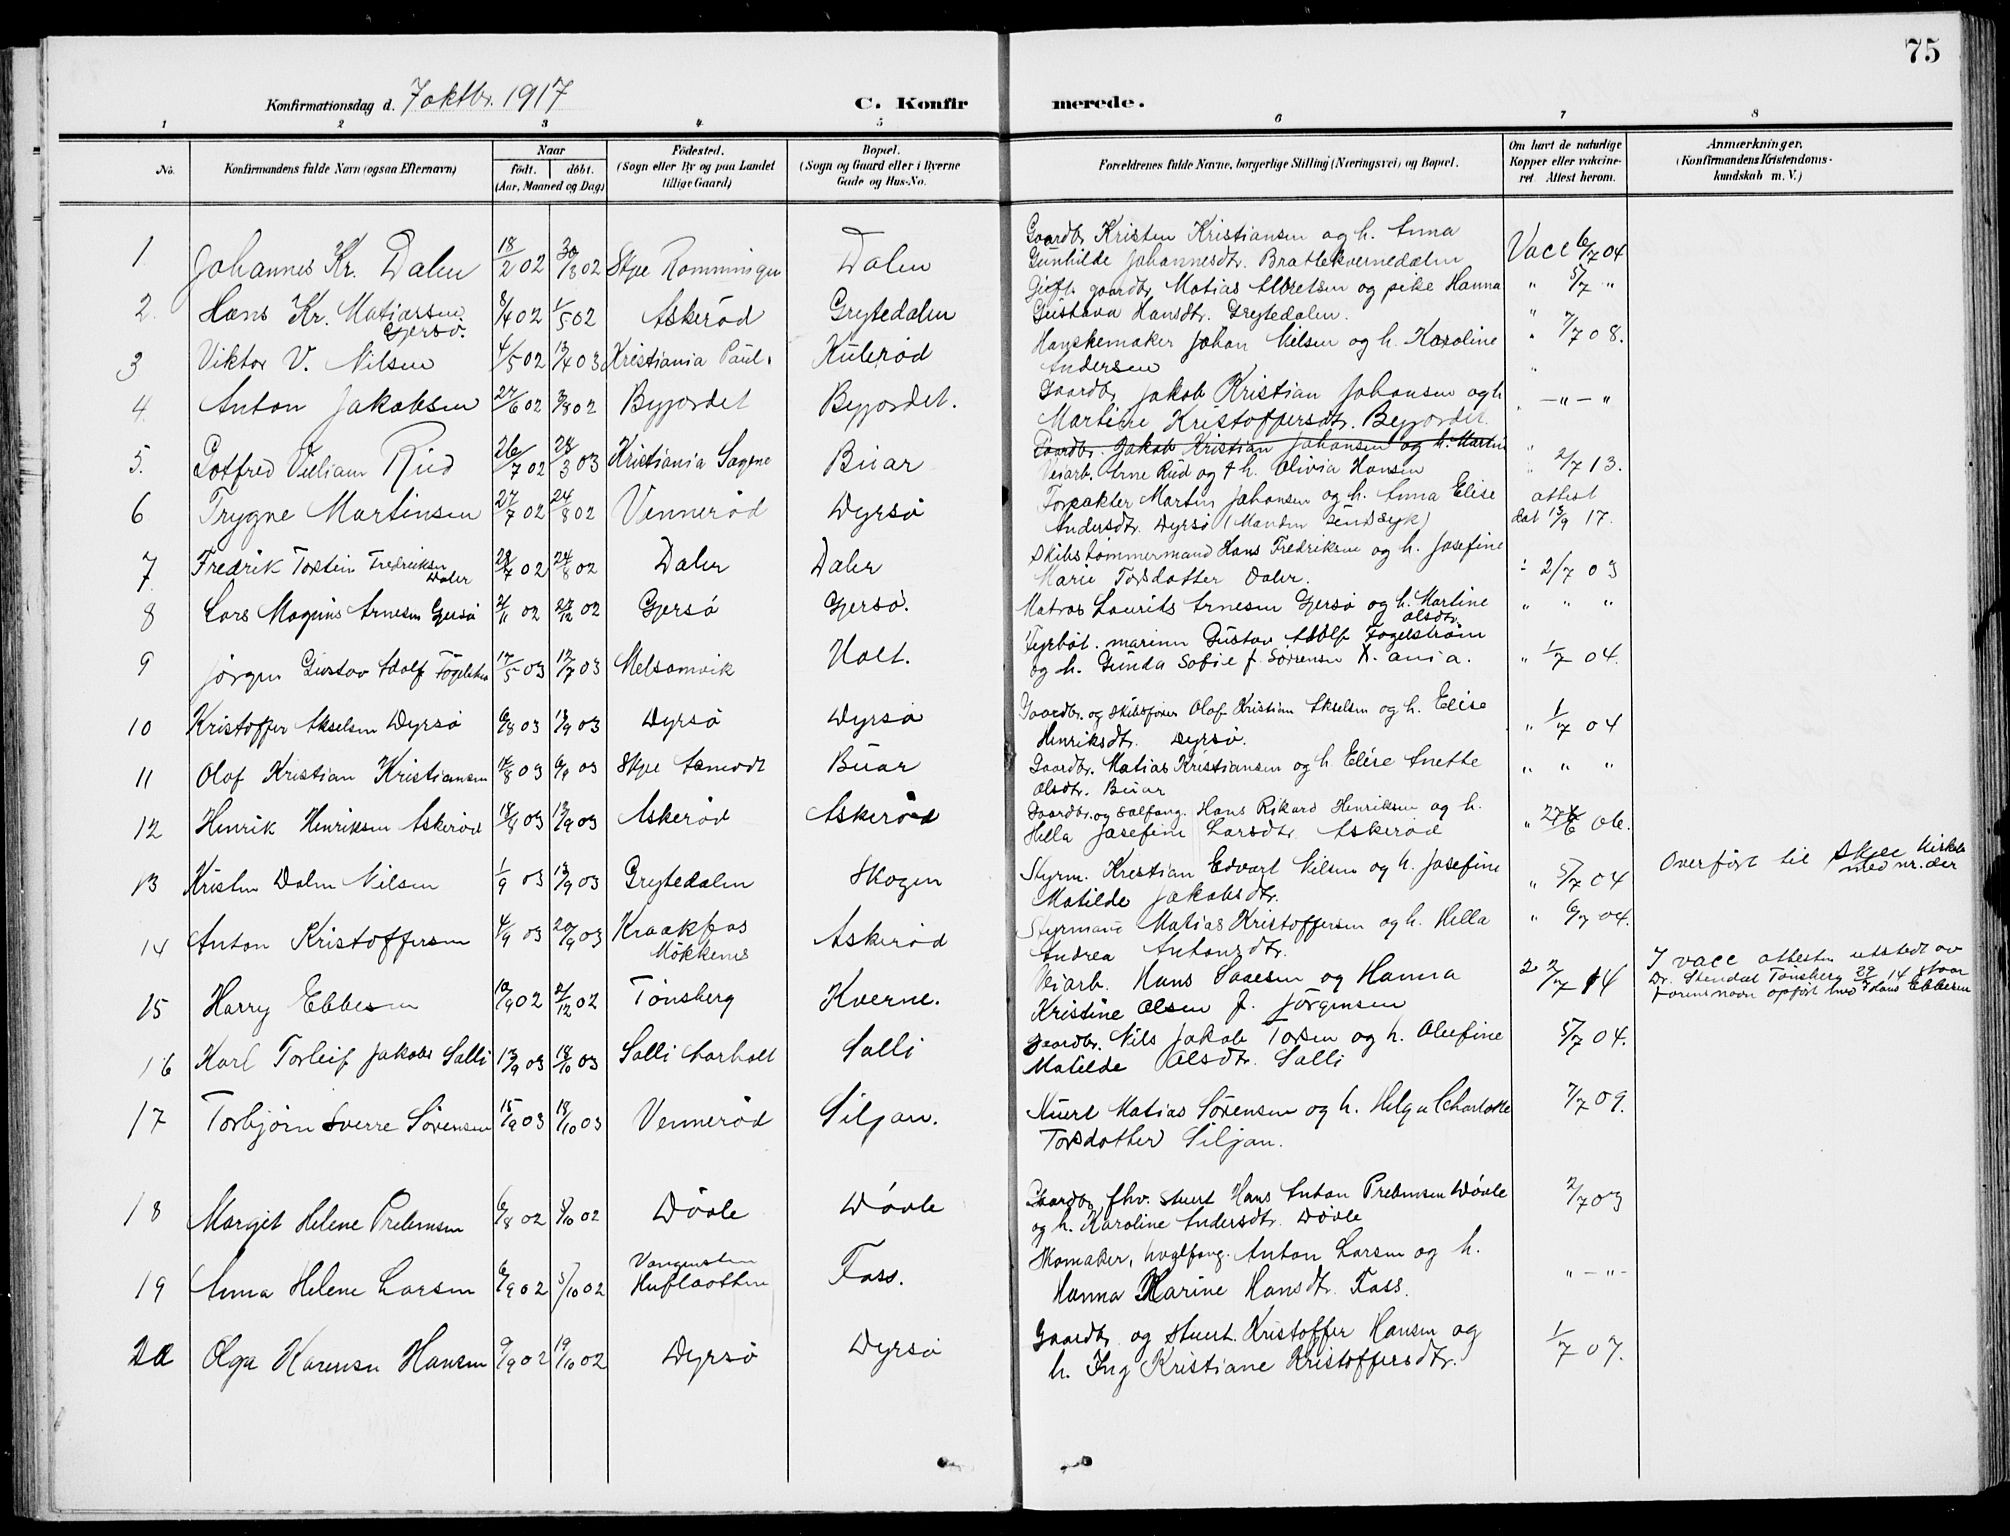 75
Konfirmationsdag d. 7 oktbr. 1917
C. Konfirmerede.
1 2 3 4 5 6 7 8
No.
Konfirmandens fulde Navn (ogsaa Efternavn)
Naar
födt. döbt.
(Aar, Maaned og Dag)
Födested.
(Sogn eller By og paa Landet
tillige Gaard)
Bopæl.
(Sogn og Gaard eller i Byerne
Gade og Hus-No.
Forældrenes fulde Navne, borgerlige Stilling (Næringsvei) og Bopæl.
Om havt de naturlige
Kopper eller vakcine-
ret. Attest herom.
Anmærkninger.
(Konfirmandens Kristendoms-
kundskab m. V.)
1 Johannes Kr. Dalen 18/2 02 30/3 02 Skjee Dalen Gaardbr. Kristen Kristiansen og h. Anna Vacc 6/7 04
Gunhilde Johannesdtr. Brattekvernedalen
2. Hans Kr. Matiassen 8/4 02 1/5 02 Askeröd Grytedalen Gift gaardbr. Matias og pike Hanna " 5/7 "
Gjersö. Gustava Hansdtr. Grytedalen.
3 Viktor V. Nilsen 4/5 02 13/4 03 Kristiania Paul. Kuleröd Hanskemaker Johan Nilsen og h. Karoline " 7/7 08.
Andersen
4. Anton Jakobsen 27/6 02 3/8 02 Byjordet Byjordet. Gaardbr. Jakob Kristian Johansen og h — " — "
Martine Kristoffersdtr. Byjordet.
Gaardbr. Jakob Kristian Johansen og h. Martin
5. Gotfred Villiam Rud 26/7 02 28/3 03 Kristiania Sagene Buar Veiarb. Arne Rud og † h. Olivia Hansen " 2/7 13.
6 Trygve Martinsen 27/7 02 24/8 02 Venneröd Dyrsö Forpakter Martin Johansen og h. Anna Elise attest
Andersdtr. Dyrsö (Manden sindssyk) dat 13/9 17.
7. Fredrik Torstein Fredriksen 28/7 02 24/8 02 Dalen Dalen Skibstömmermand Hans Fredriksen og h. Josefine
Dalen Marie Torsdotter Dalen. " 2/7 03
8 Lars Magnus Arnesen Gjersö 2/11 02 27/12 02 Gjersö Gjersö. Matros Laurits Arnesen Gjersö og h. Martine " " "
Olsdtr.
9 Jörgen Gustav Adolf Fogelström 17/5 03 12/7 03 Melsomvik Holt. Fyrböt. marinen Gustav Adolf Fogelström
og h. Gunda Sofie f. Sörensen Kr.ania. " 1/7 04.
10 Kristoffer Akselsen Dyrsö 6/8 03 13/9 03 Dyrsö Dyrsö Gaardbr. og Skibsförer Olaf Kristian Akselsen og h. Elise " 1/7 04
Henriksdtr. Dyrsö.
11 Olaf Kristian Kristiansen 14/8 03 6/9 03 Skjee Aamodt Buar Gaardbr. Matias Kristiansen og h. Elise Anette " " "
Olsdtr. Buar
12 Henrik Henriksen Askeröd 18/8 03 13/9 03 Askeröd Askeröd Gaardbr. og sælfang. Hans Rikard Henriksen og h.
Hella Josefine Larsdtr. Askeröd " 27/6 06.
13 Kristen Dalen Nilsen 1/9 03 13/9 03 Grytedalen Skogen Styrm. Kristian Edvart Nilsen og h. Josefine " 5/7 04 Overfört til Skjee kirke
Matilde Jakobsdtr. med nr. der
14 Anton Kristoffersen 4/9 03 20/9 03 Kraakfos Askeröd Styrmand Matias Kristoffersen og h. Hella " 6/7 04.
Andrea Antonsdtr.
15 Harry Ebbesen 10/9 02 21/12 02 Tönsberg Kverne. Veiarb. Hans og Hanna 22/7 14 I vacc attesten utstedt av
Kristine Olsen f. Jörgensen Dr. Stendal Tönsberg 22/7 14 staar
fornavn opfört Hans Ebbesen
16 Karl Torleif Jakobs Salli 13/9 03 18/10 03 Salli Aarholt Salli Gaardbr. Nils Jakob Torsen og h. Olufine 5/7 04.
Matilde Olsdtr. Salli
17 Torbjörn Sverre Sörensen 15/9 03 18/10 03 Venneröd Siljan. Stuert Matias Sörensen og h. Helga Charlotte 7/7 09.
Torsdotter Siljan.
18 Margit Helene Prebensen 6/8 02 5/10 02 Dövle Dövle Gaardbr. fhv. Stuert Hans Anton Prebensen Dövle 2/7 03
og h. Karoline Andersdtr. Dövle
19 Anna Helene Larsen 6/9 02 5/10 02 Fass. Skomaker, hvalfang. Anton Larsen og h. " — " —
Hanna Karine Hansdtr. Fass.
20 Olga Hansen 9/9 02 19/10 02 Dyrsö Dyrsö Gaardbr. og Stuert. Kristoffer Hansen og 1/7 07.
h. Ing Kristiane Kristoffersdtr.